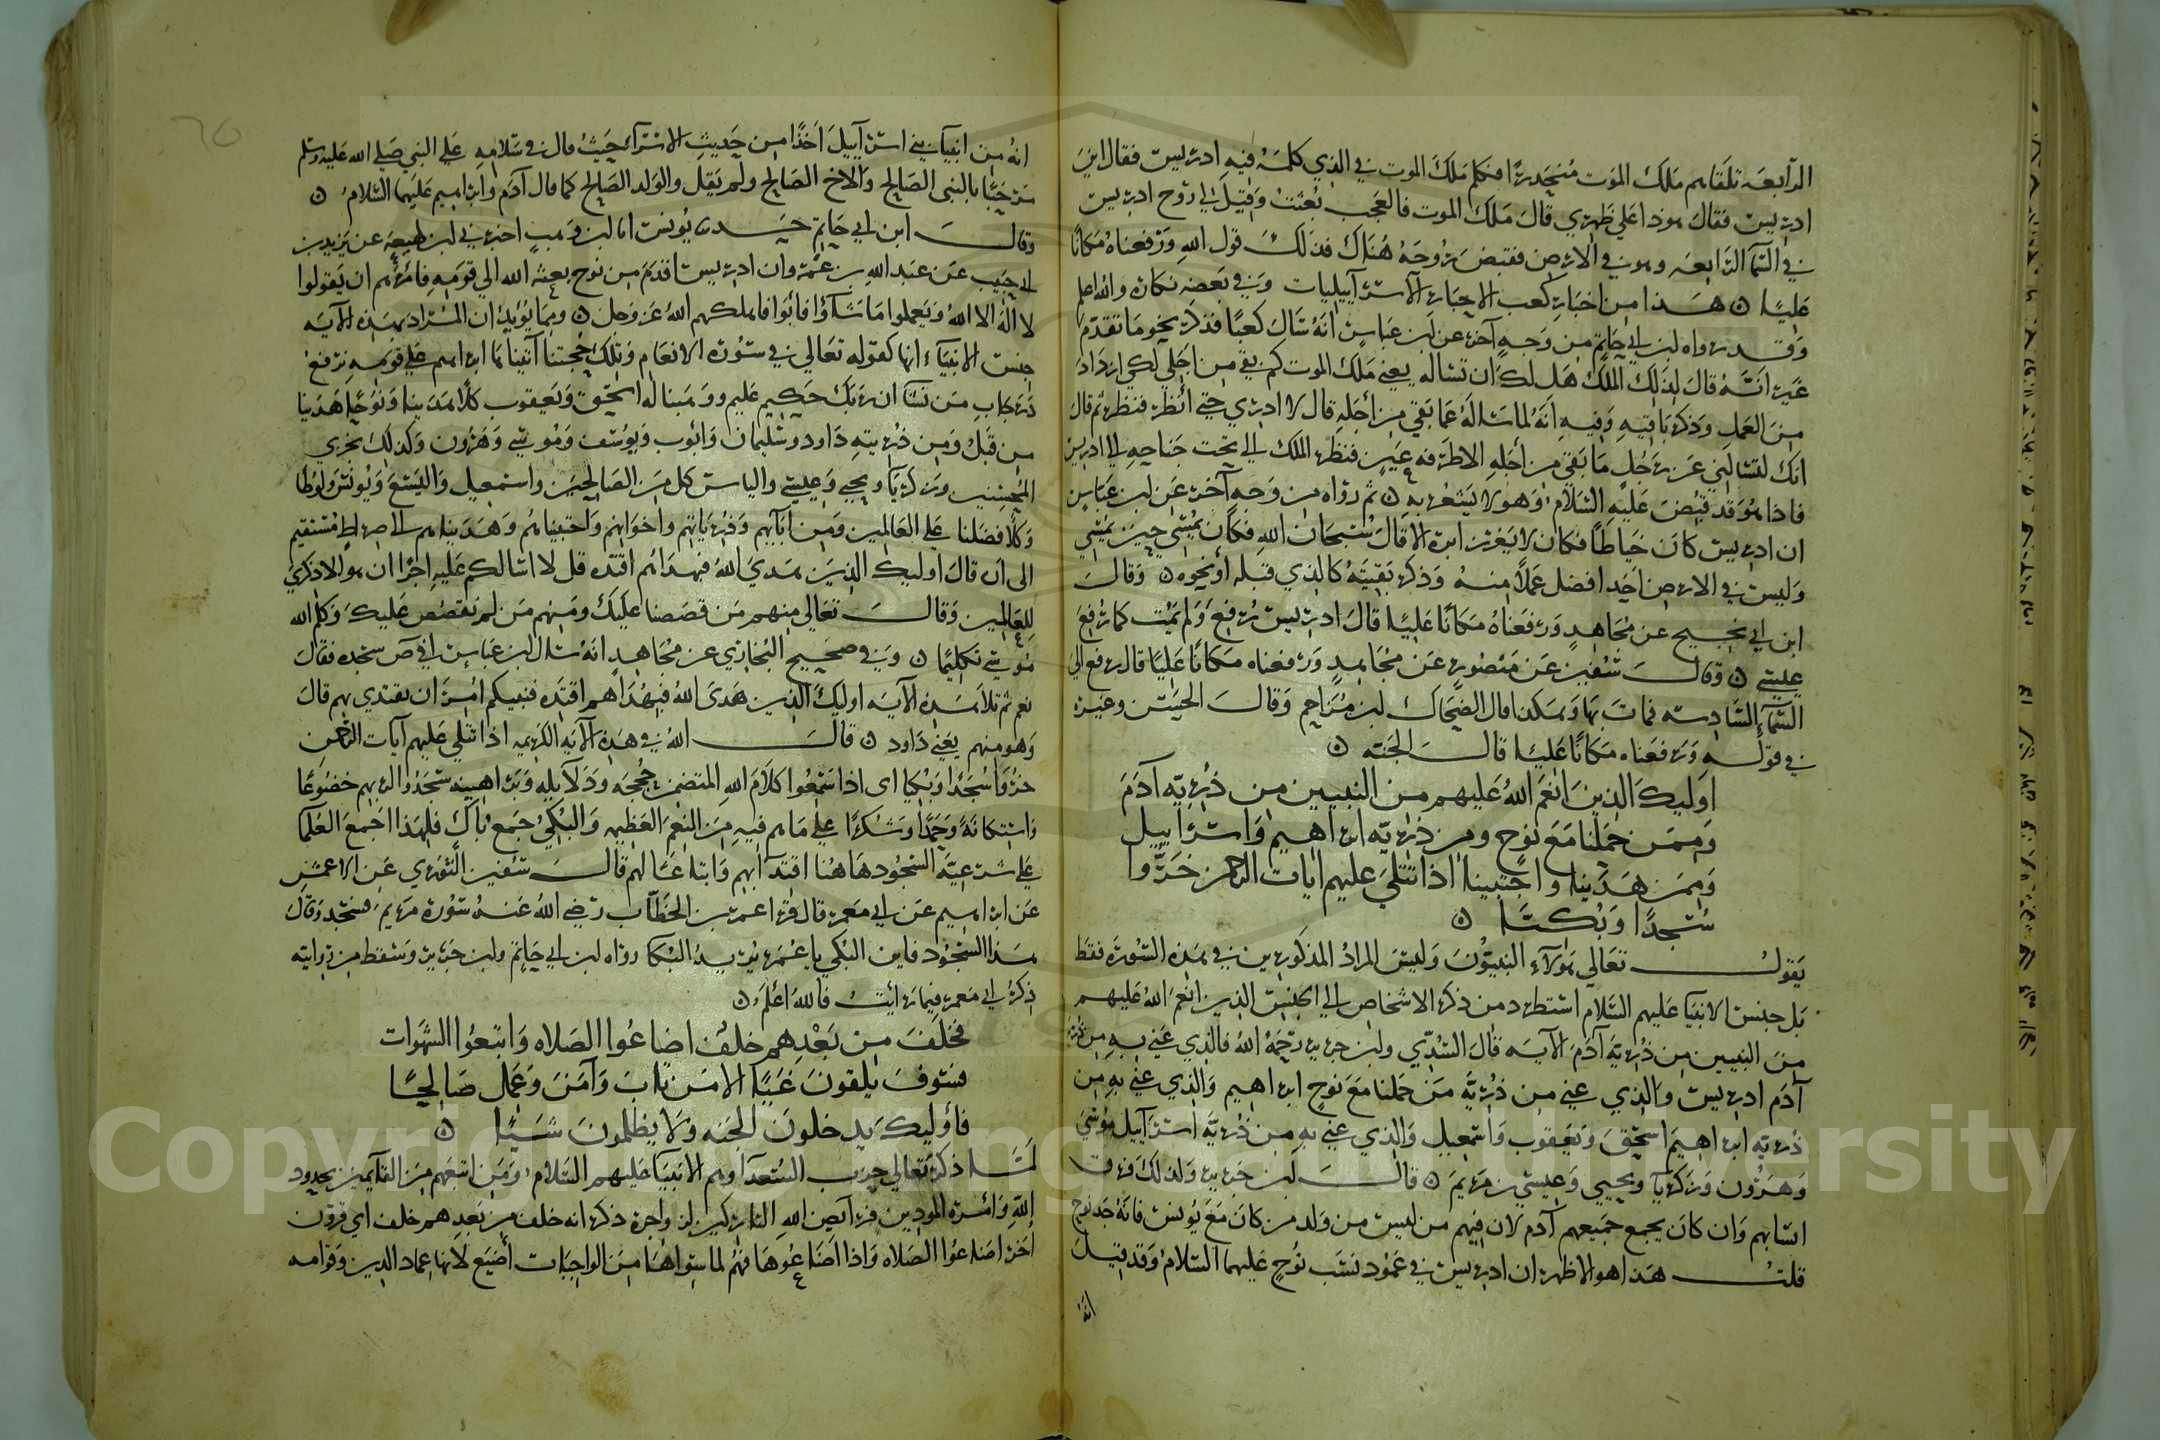 الرابعه تلقاهم ملك الموت منحدرا فكلم ملك الموت في الذي كلمه فيه ادريس فقال اين
ادريس فقال هوذا علي ظهري قال ملك الموت فالعجب بعثت وقيل لي اقبض روح ادريس
في السما الرابعه وهو في الارض فقبض روحه هناك فذلك قول الله ورفعناه مكانا
عليا ه هذا من اخبار كعب الاحبار الاسرآييليات وفي بعضه نكاره والله اعلم
وقد رواه ابن ابي حاتم من وجه آخر عن ابن عباس انه سال كعبا فذكر نحو ما تقدم
غير انه قال لذلك الملك هل لك ان تساله يعني ملك الموت كم بقي من اجلي لكي ازداد
من العمل وذكر باقيه وفيه انه لما ساله عما بقي من أجله قال لا ادري حتي أنظر فنظر ثم قال
انك لتسالني عن رجل ما بقي من أجله الا طرفه عين فنظر الملك الي تحت جناحه الي ادريس
فاذا هو قد قبض عليه السلام وهو لا يشعر به ه ثم رواه من وجه آخر عن ابن عباس
ان ادريس كان خياطا فكان لا يغرز ابرة الا قال سبحان الله فكان يمسي حين يمسي
وليس في الارض احد افضل عملا منه وذكر بقيته كالذي قبله أو نحوه ه وقال
ابن ابي نجيح عن مجاهد ورفعناه مكانا عليا قال ادريس رفع ولم يمت كما رفع
عيسي ه وقال سفين عن منصور عن مجاهد ورفعناه مكانا عليا قال رفع الي
السمآء السادسه فمات بها وهكذا قال الضحاك ابن مزاحم وقال الحسن وغيره
في قوله ورفعناه مكانا عليا قال الجنه ه
اوليك الذين انعم الله عليهم من النبيين من ذريه آدم
وممن حملنا مع نوح ومن ذريه ابراهيم واسرآييل
وممن هدينا واجتبينا اذا تتلي عليهم ايات الرحمن خروا
سجدا وبكيا ه
يقول تعالي هولآء النبيون وليس المراد المذكورين في هذه السورة فقط
بل جنس الانبيا عليهم السلام استطرد من ذكر الاشخاص الي الجنس الذين انعم الله عليهم
من النبيين من ذرية آدم الآيه قال السدي وابن جرير رحمه الله فالذي عني به من ذرية
آدم ادريس والذي عني من ذرية من حملنا مع نوح ابراهيم والذي عني به من
ذريه ابراهيم اسحق ويعقوب واسمعيل والذي عني به من ذرية اسرآييل موسي
وهرون وزكريآ ويحيي وعيسي بن مريم ه قال ابن جرير ولذلك فرق
انسابهم وان كان يجمع جميعهم آدم لان فيهم من ليس من ولد من كان مع نوح
قلت هذا هو الاظهر ان ادريس في عمود نسب نوح عليهما السلام وقد قيل
انه
انه من انبيآ بني اسرآييل اخذا من حديث الاسرآء حيث قال في سلامه علي النبي صلي الله عليه وسلم
مرحبا بالنبي الصالح والاخ الصالح ولم يقل والولد الصالح كما قال آدم وابراهيم عليهما السلام ه
وقال ابن ابي حاتم حدثنا يونس انا ابن وهب اخبرني ابن لهيعه عن يزيد بن
ابي حبيب عن عبد الله بن عمرو ان ادريس اقدم من نوح بعثه الله الي قومه فامرهم ان يقولوا
لا اله الا الله ويعملوا ما شاؤا فابوا فاهلكهم الله عز وجل ه ومما يؤيد ان المراد بهذه الآيه
جنس الانبيآء انها كقوله تعالي في سورة الانعام وتلك حجتنا آتيناها ابراهيم علي قومه نرفع
درجات من نشا ان ربك حكيم عليم ووهبنا له اسحق ويعقوب كلا هدينا ونوحا هدينا
من قبل ومن ذريته داود وسليمان وايوب ويوسف وموسي وهرون وكذلك نجزي
المحسنين وزكريآ ويحيي وعيسي والياس كل من الصالحين واسمعيل واليسع ويونس ولوطا
وكلا فضلنا علي العالمين ومن آبآيهم وذرياتهم واخوانهم واجتبيناهم وهديناهم الي صراط مستقيم
الي ان قال اوليك الذين هدي الله فبهداهم اقتده قل لا اسالكم عليه اجرا ان هو الا ذكري
للعالمين وقال تعالي منهم من قصصنا عليك ومنهم من لم نقصص عليك وكلم الله
موسي تكليما ه وفي صحيح البخاري عن مجاهد انه سال ابن عباس افي ص سجده فقال
نعم ثم تلا هذه الآيه اوليك الذين هدي الله فبهداهم اقتده فنبيكم امر ان يقتدي بهم قال
وهو منهم يعني داود ه قال الله في هذه الآيه الكريمه اذا تتلي عليهم آيات الرحمن
خروا سجدا وبكيا اي اذا سمعوا كلام الله المتضمن حججه ودلايله وبراهينه سجدوا لربهم خضوعا
واستكانة وحمدا وشكرا علي ما هم فيه من النعم العظيمه والبكي جمع باك فلهذا اجمع العلما
علي شرعية السجود هاهنا اقتدآ بهم واتباعا لهم قال سفين الثوري عن الاعمش
عن ابراهيم عن ابي معمر قال قرا عمر بن الخطاب رضي الله عنه سورة مريم فسجد وقال
هذا السجود فاين البكي يا عمر يريد البكا رواه ابن ابي حاتم وابن جرير وسقط من روايته
ذكر ابي معمر فيما رايت فالله اعلم ه
فخلف من بعدهم خلف اضاعوا الصلاه واتبعوا الشهوات
فسوف يلقون غيا الا من تاب وآمن وعمل صالحا
فاوليك يدخلون الجنه ولا يظلمون شيئا ه
لما ذكر تعالي حزب السعدآ وهم الانبيآ عليهم السلام ومن اتبعهم من القآيمين بحدود
الله وأمره المودين فرآيض الله التاركين لزواجره ذكر انه خلف من بعدهم خلف اي قرون
اخر اضاعوا الصلاه واذا اضاعوها فهم لما سواها من الواجبات أضيع لانها عماد الدين وقوامه
Copyright © King Saud University